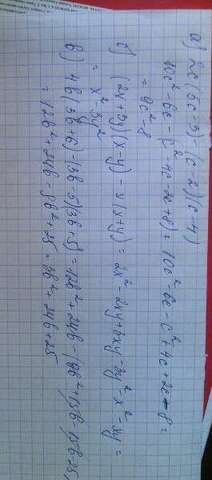 а) 2c(5c-3)-(c-2)(c-4)
10c²-6c-(c²-4c-2c+8)=10c²-6c-c²+4c+2c-8=
=9c²-8
б) (2x+3y)(x-y)-x(x+y)=2x²-2xy+3xy-3y²-x²-xy=
=x²-3y²
в) 4b(3b+6)-(3b-5)(3b+5)=12b²+24b-(9b²+15b-15b-25)
=12b²+24b-9b²+25=3b²+24b+25